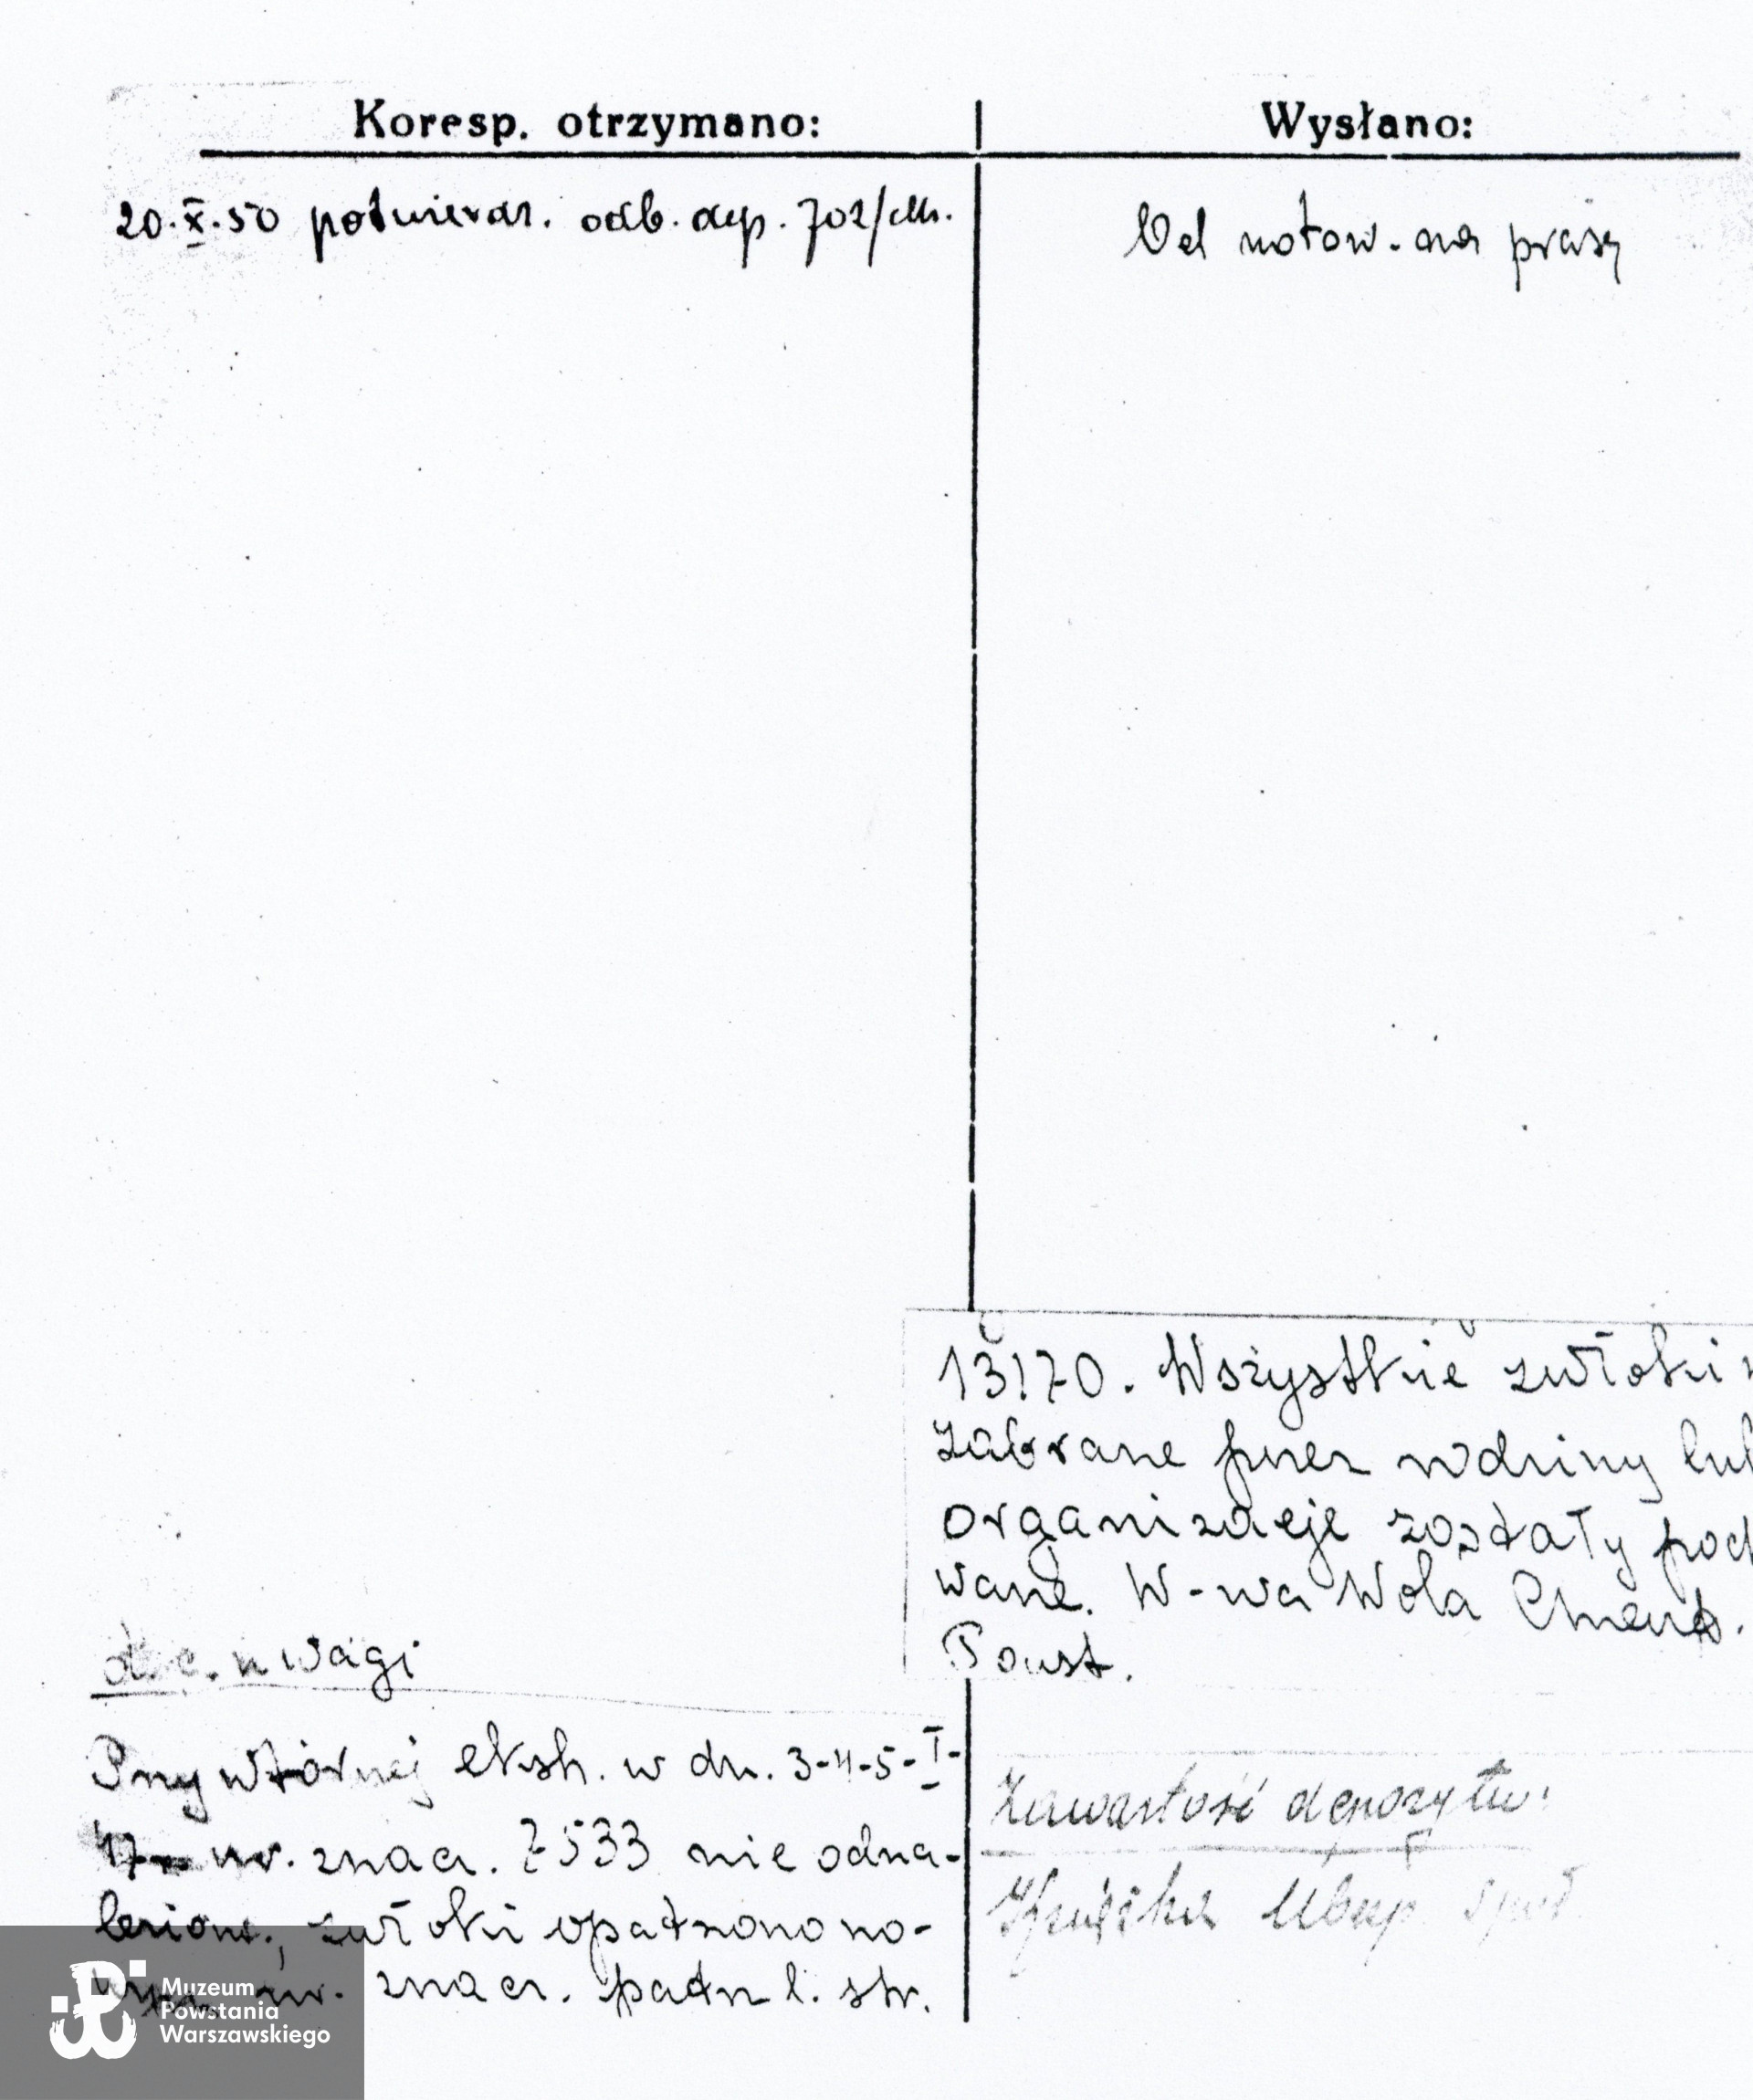 Koresp. otrzymano:
Wysłano:
20.X.50 potwierdz. odb. dep. 702/
Od notow. na prasę
13170. Wszystkie zwłoki
zabrane przez rodziny lub
organizacje zostały pod
wane. W-wa Wola Cment.
Powst.
d.c. uwagi
Przy wtórnej eksh. w dn. 3-4-5-I-
47 nr. znacz. 7533 nie odna-
leziono, zwłoki opatrzono no-
nr. znacz. patrz l. str.
Zawartość depozytu:
Książka Ubezp. Społ.
Muzeum
Powstania
Warszawskiego